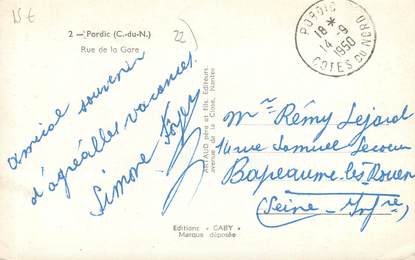 15 €
2 - Pordic (C.-du-N.)
Rue de la Gare
22
PORDIC
18 * 
14 -9
1950
COTES DU NORD
amical souvenir
d'agréables vacances
Simone
ARTAUD père et fils, Editeurs
avenue de la Close, Nantes
Mr Rémy Lejard
14 rue Samuel Lecoeur
Bapeaume-lès-Rouen
(Seine-Infre)
Editions « GABY »
Marque déposée